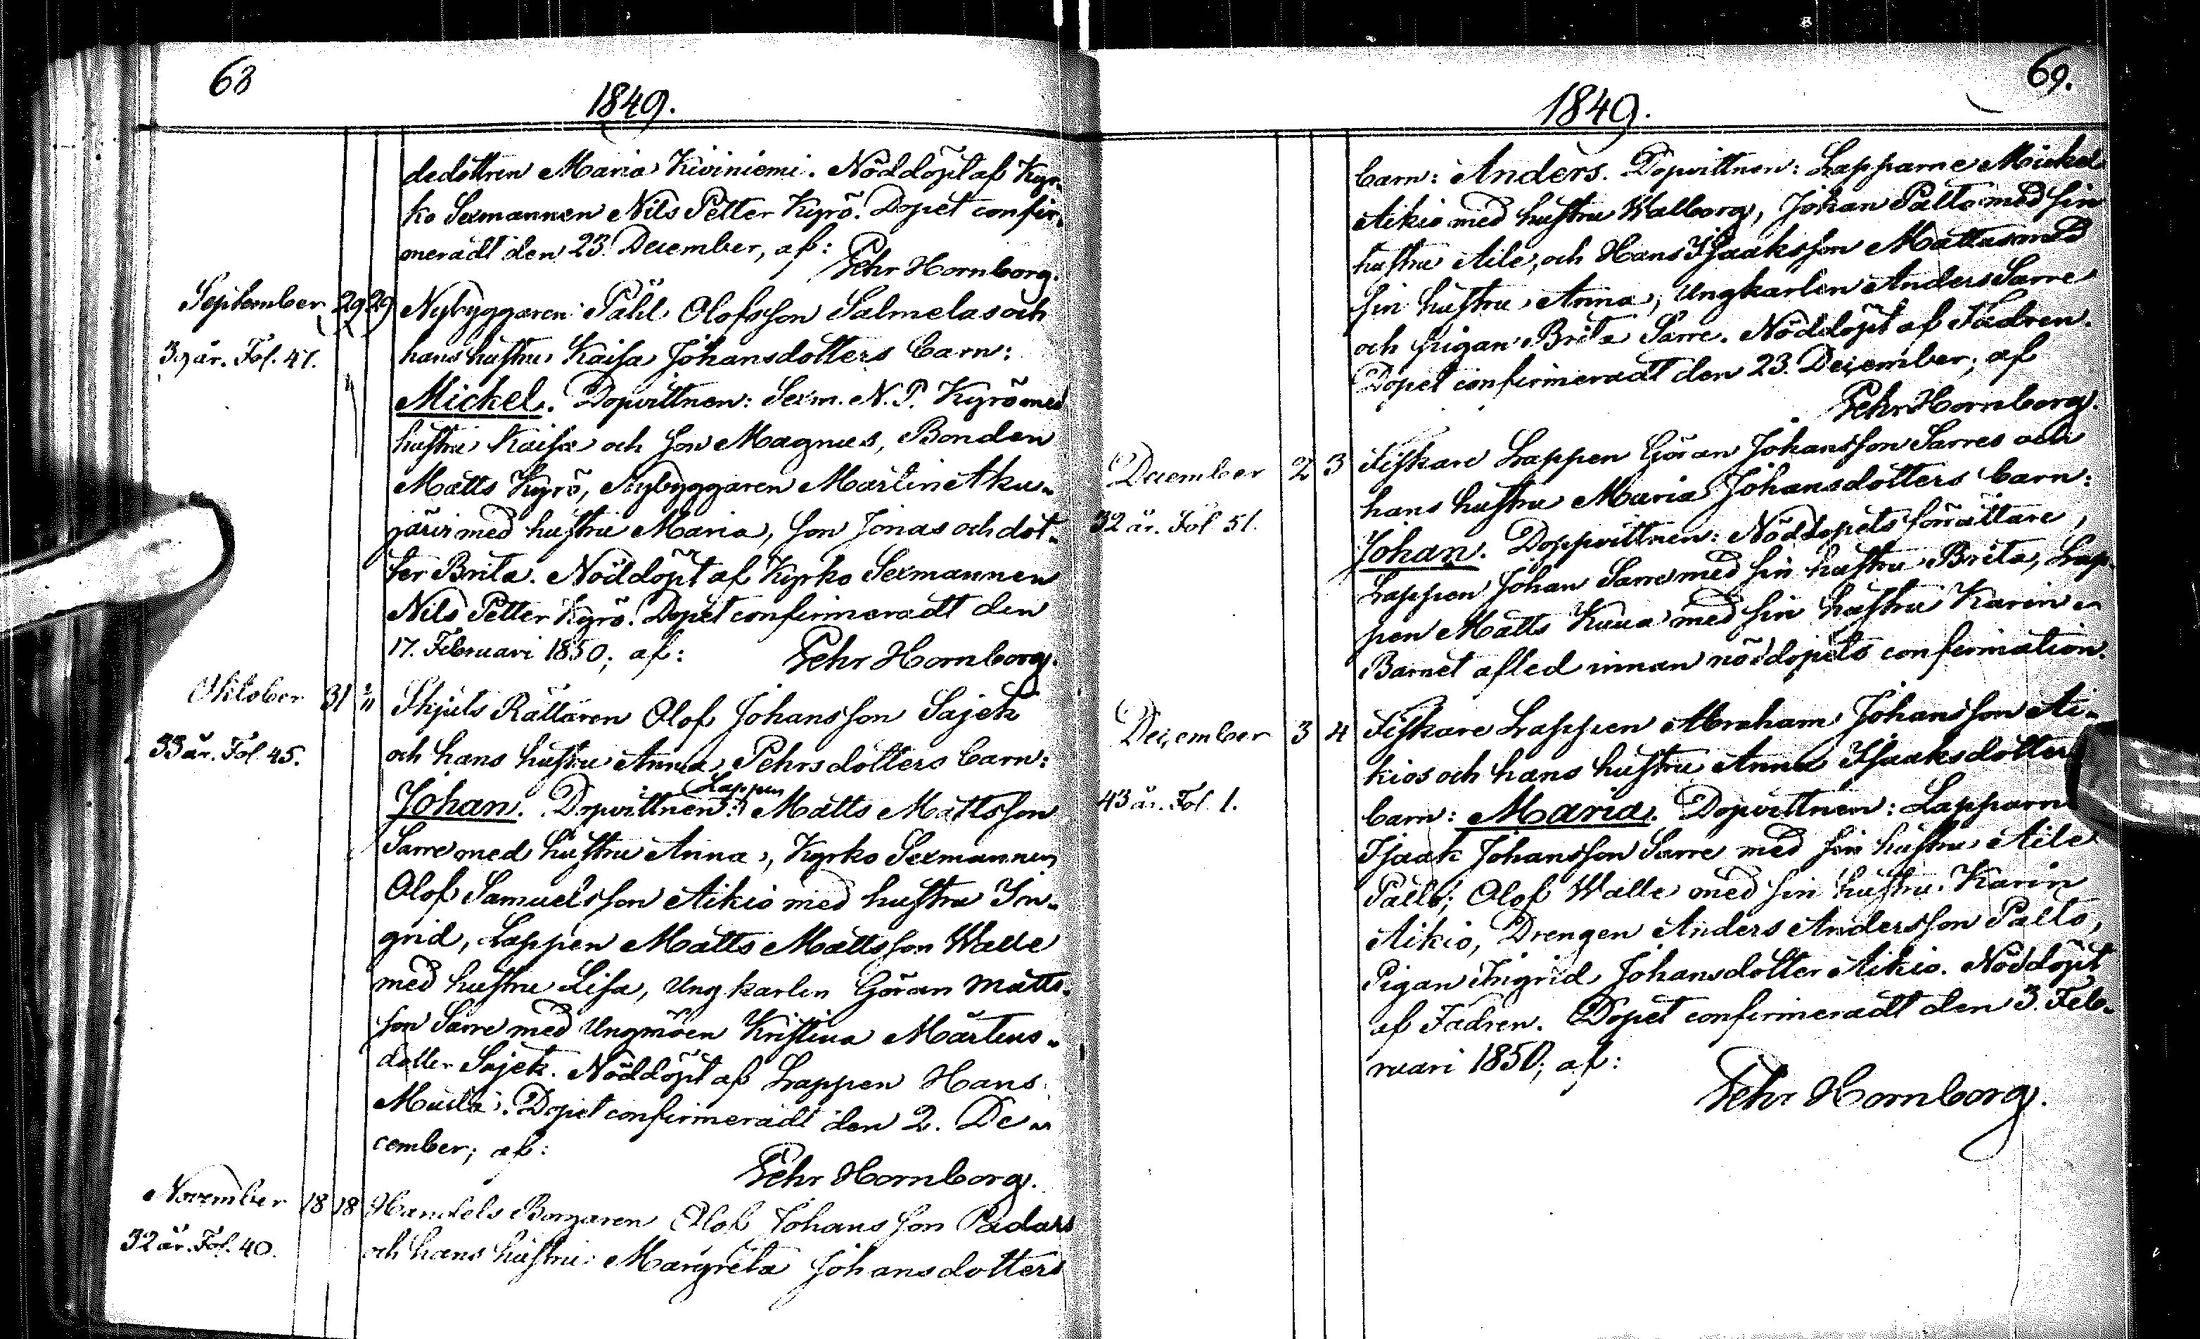 68
1849.
dedottren Maria Kiviniemi. Nöddöpt af Kyr-
ko Sexmannen Nils Petter Kyrö. Dopet confir-
meradt den 23. December, af:
Pehr Hornborg.
September 29 29 Nybyggaren Påhl Olofsson Salmelas och
39 år. Fol. 47. hans hustru Kaisa Johansdotters barn:
Mickel. Dopvittnen: Sexm. N. P. Kyrö med
hustru Kaisa och son Magnus, Bonden
Matts Kyrö, Nybyggaren Martin Aku-
järvi med hustru Maria, son Jonas och dot-
ter Brita. Nöddöpt af Kyrko Sexmannen
Nils Petter Kyrö. Dopet confirmeradt den
17. Februari 1850; af: Pehr Hornborg.
Oktober 31 Skjuts Rättaren Olof Johansson Sajek
33 år. Fol. 45. och hans hustru Anna Pehrsdotters barn:
Lappen
Johan. Dopvittnen: Matts Mattsson
Sarre med hustru Anna, Kyrko Sexmannen
Olof Samuelsson Aikio med hustru In-
grid, Lappen Matts Mattsson Walle
med hustru Lisa, Ungkarlen Göran Matts-
son Sarre med Ungmöen Kristina Mårtens-
dotter Sajek. Nöddöpt af Lappen Hans
Dopet confirmeradt den 2. De-
cember; af:
Pehr Hornborg.
November 18 18 Handels Borgaren Olof Johansson Padars
32 år. Fol. 40. och hans hustru Margreta Johansdotters
69.
1849.
barn: Anders. Dopvittnen: Lapparne Mickel
Aikio med hustru Walborg, Johan Palto med sin
hustru Aile, och Hans Isaaksson Mattas med
sin hustru Anna, Ungkarlen Anders Sarre
och pigan Brita Sarre. Nöddöpt af Fadren.
Dopet confirmeradt den 23. December; af
Pehr Hornborg.
December 2 3 Fiskare Lappen Göran Johansson Sarres och
hans hustru Maria Johansdotters barn:
32 år. Fol. 51. Johan. Doppvittnen: Nöddopets förrättare,
Lappen Johan Sarre med sin hustru Brita, Lap-
pen Matts Kuua med sin hustru Karin.
Barnet afled innan nöddopets confirmation.
December 3 4 Fiskare Lappen Abraham Johansson Ai-
kios och hans hustru Anna Isaaksdotters
43 år. Fol. 1. barn: Maria. Dopvittnen: Lapparn
Isaak Johansson Sarre med sin hustru Aile
Palto; Olof Walle med sin hustru Karin
Aikio, Drengen Anders Andersson Palto,
Pigan Ingrid Johansdotter Aikio. Nöddöpt
af Fadren. Dopet confirmeradt den 3. Feb-
ruari 1850; af:
Pehr Hornborg.